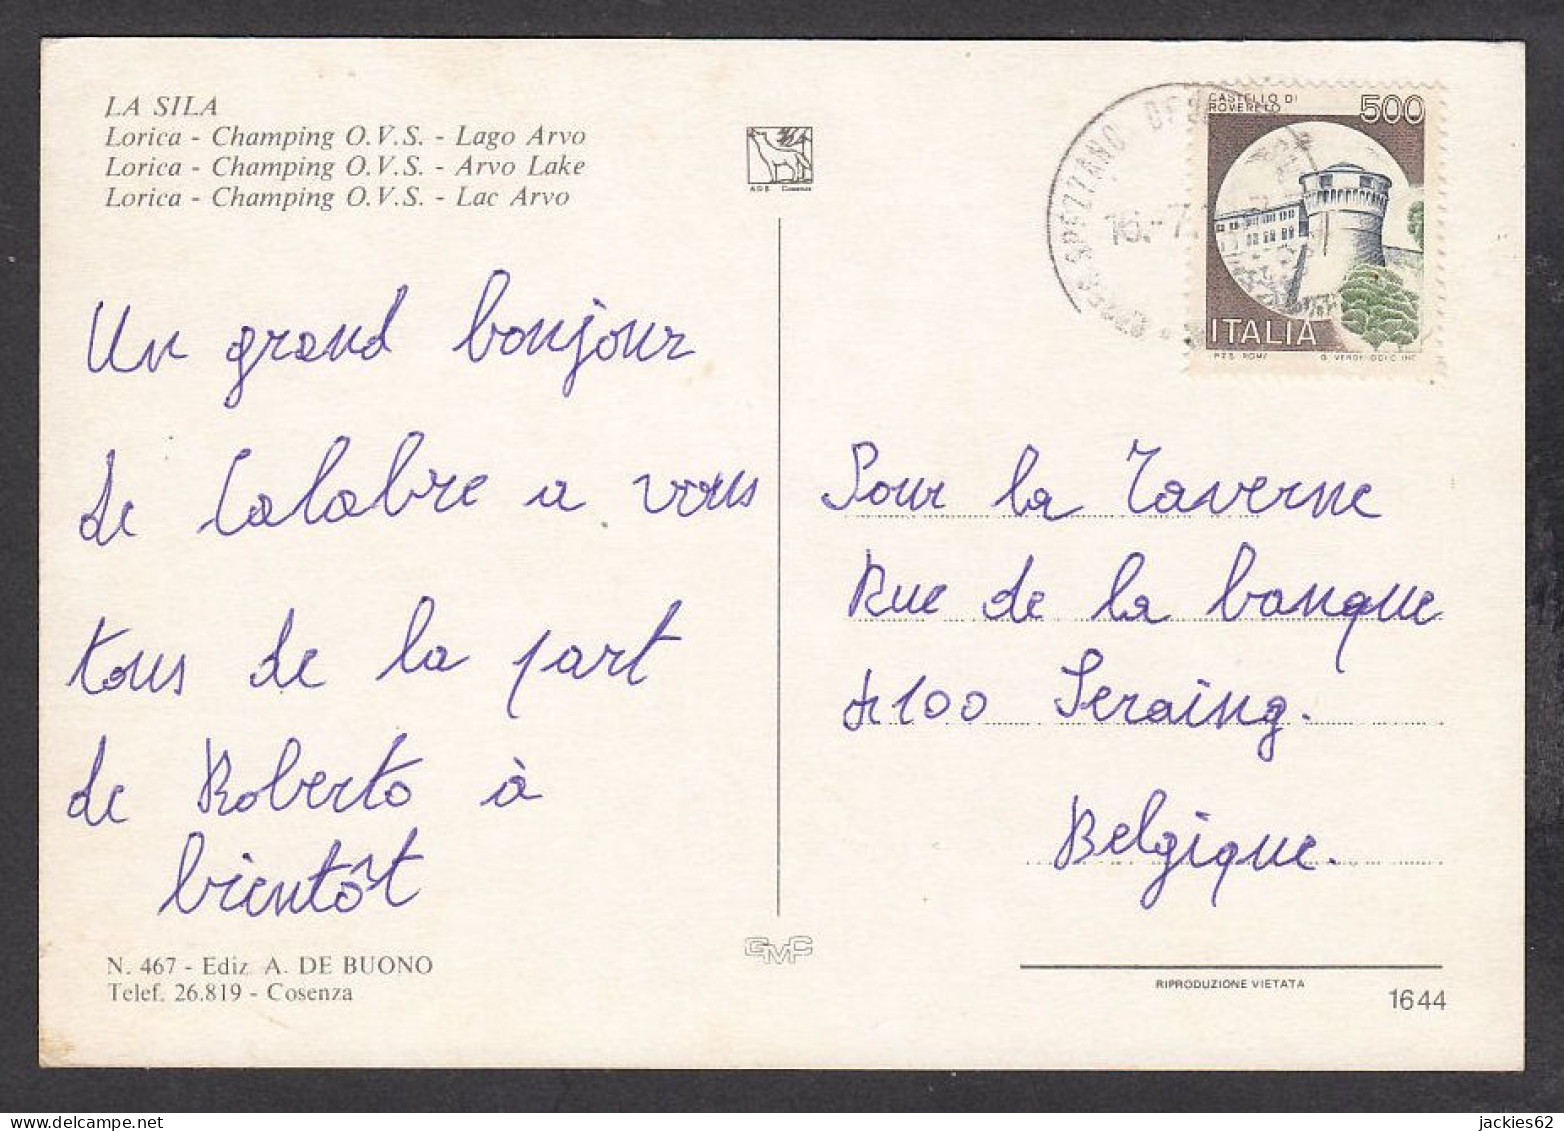 LA SILA
Lorica - Champing O.V.S. - Lago Arvo
Lorica - Champing O.V.S. - Arvo Lake
Lorica - Champing O.V.S. - Lac Arvo
Un grand bonjour
de Calabre a vous
tous de la part
de Roberto à
bientôt
N. 467 - Ediz. A. DE BUONO
Telef. 26.819 - Cosenza
ADB Cosenza
GMC
SPEZZANO DE
16.-7.
CASTELLO DI
ROVERETO
500
ITALIA
P.Z.S. ROMA
Pour la Taverne
Rue de la banque
4100 Seraing.
Belgique.
RIPRODUZIONE VIETATA
1644
jackies62